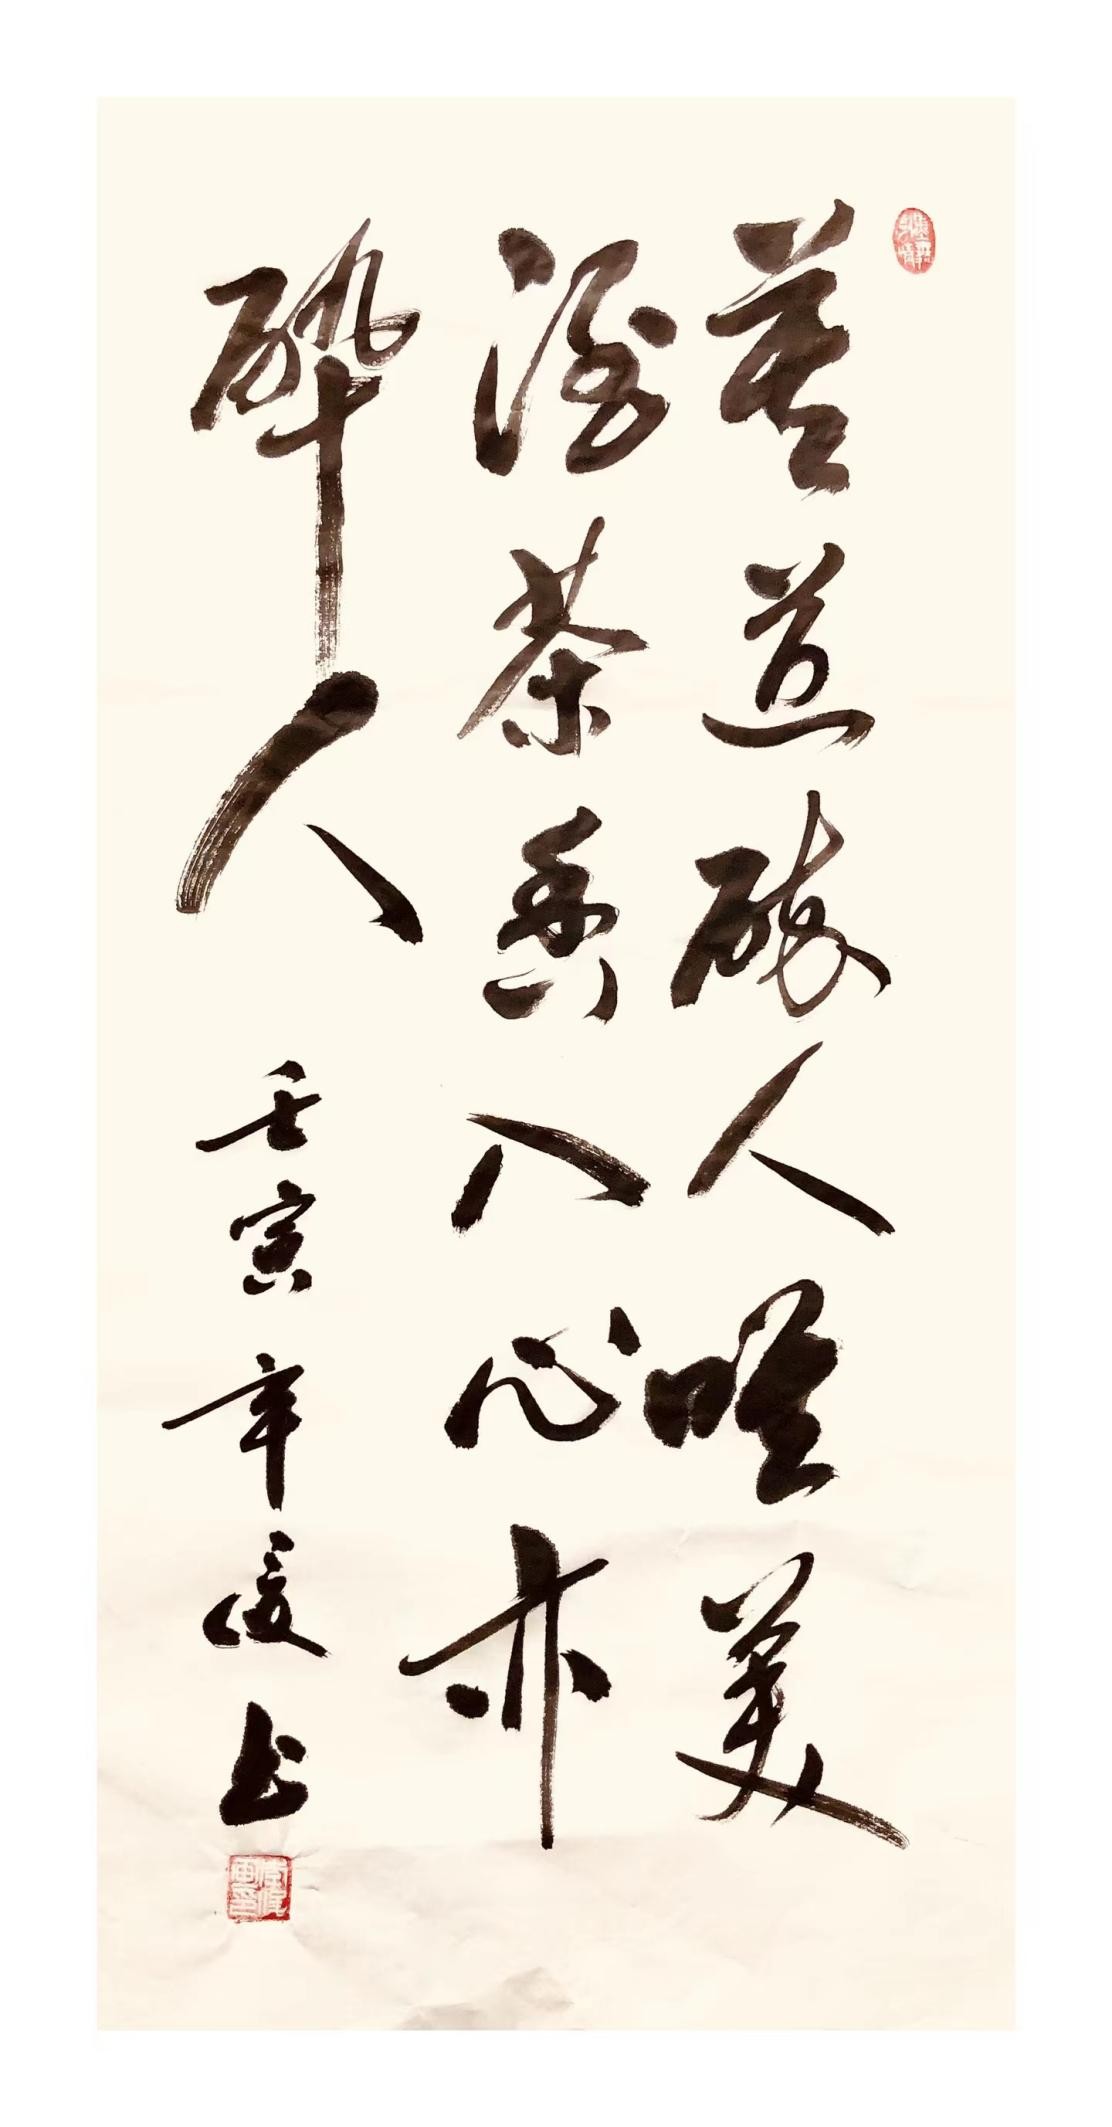 莫道醉人唯美
酒茶香入心亦
醉人
壬寅年俊书